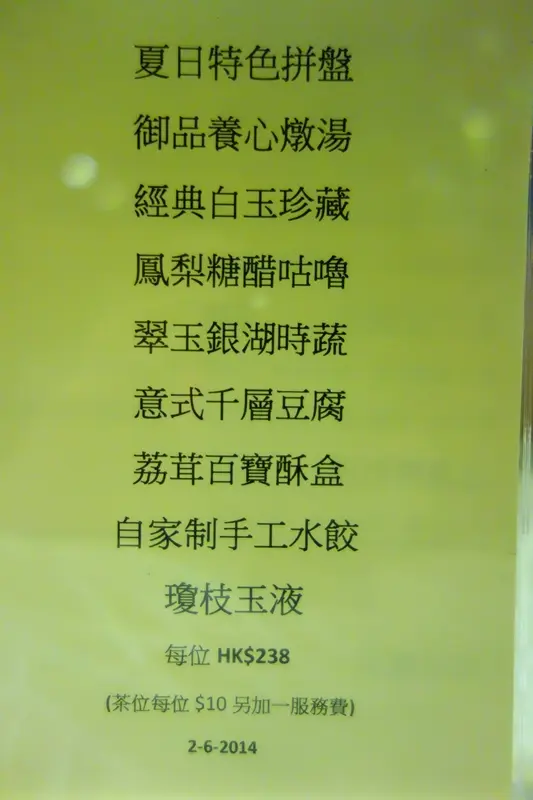 夏日特色拼盤
御品養心燉湯
經典白玉珍藏
鳳梨糖醋咕嚕
翠玉銀湖時蔬
意式千層豆腐
荔茸百寶酥盒
自家制手工水餃
瓊枝玉液
每位 HK$238
(茶位每位 $10 另加一服務費)
2-6-2014